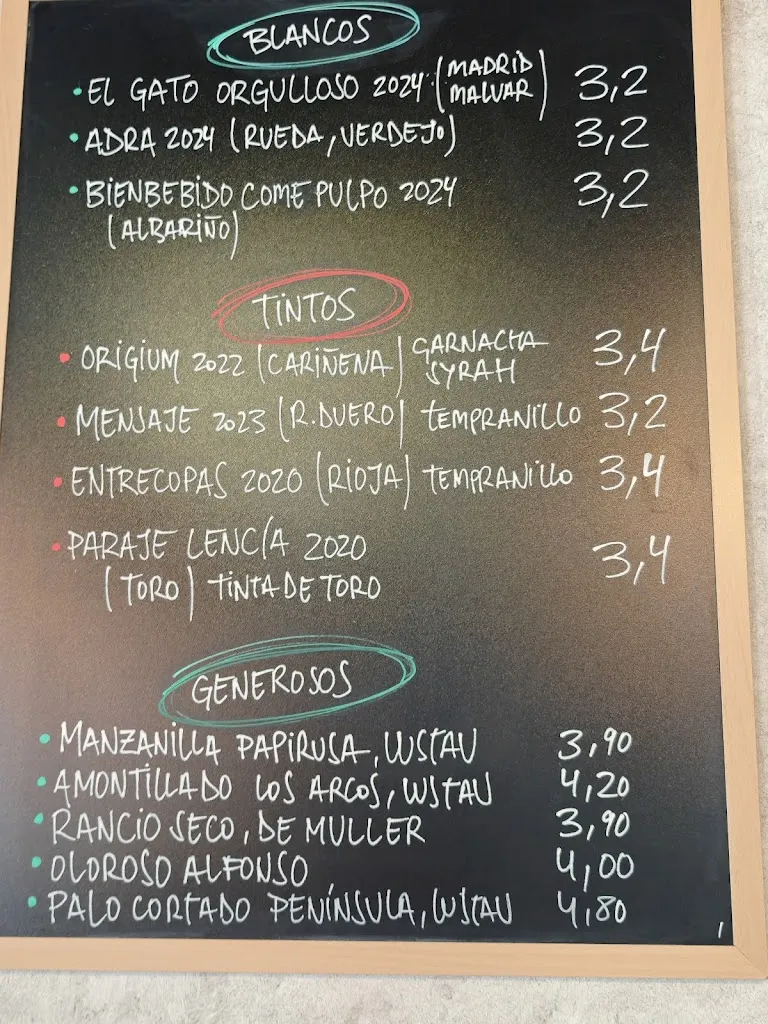 BLANCOS
• EL GATO ORGULLOSO 2024 (MADRID MALVAR) 3,2
• ADRA 2024 (RUEDA, VERDEJO) 3,2
• BIENBEBIDO COME PULPO 2024 3,2
(ALBARIÑO)
TINTOS
• ORIGIUM 2022 (CARIÑENA) GARNACHA SYRAH 3,4
• MENSAJE 2023 (R.DUERO) TEMPRANILLO 3,2
• ENTRECOPAS 2020 (RIOJA) TEMPRANILLO 3,4
• PARAJE LENCÍA 2020 3,4
(TORO) TINTA DE TORO
GENEROSOS
• MANZANILLA PAPIRUSA, LUSTAU 3,90
• AMONTILLADO LOS ARCOS, LUSTAU 4,20
• RANCIO SECO, DE MULLER 3,90
• OLOROSO ALFONSO 4,00
• PALO CORTADO PENÍNSULA, LUSTAU 4,80